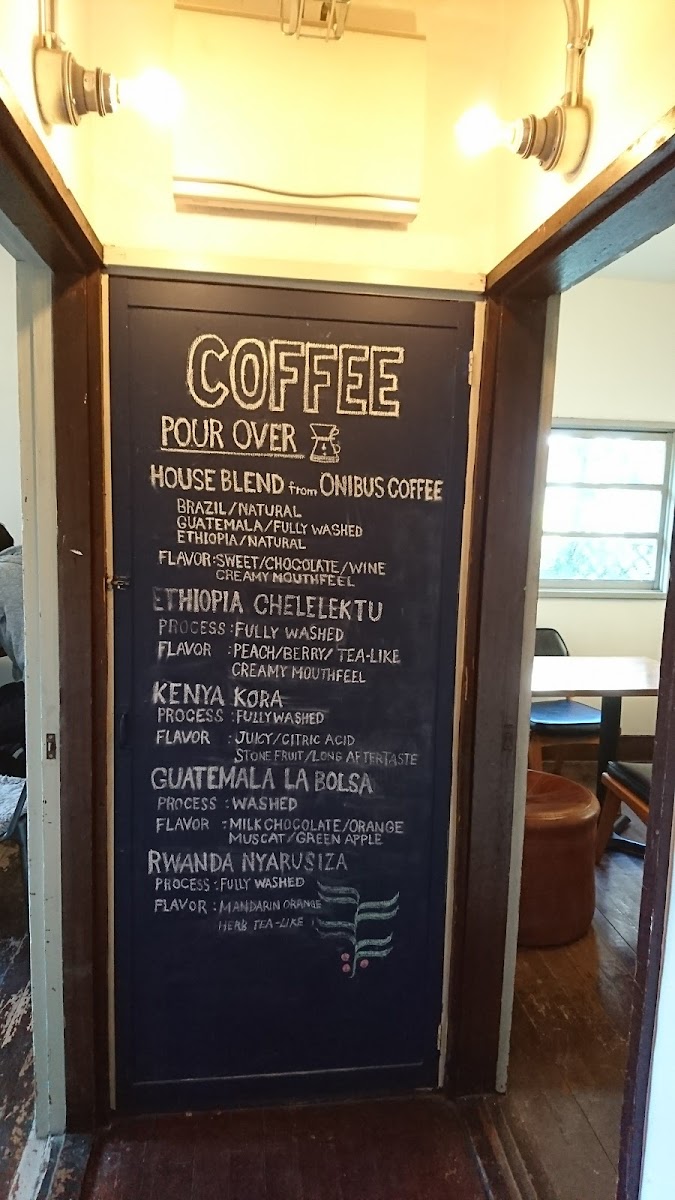 COFFEE
POUR OVER
HOUSE BLEND from ONIBUS COFFEE
BRAZIL/NATURAL
GUATEMALA/FULLY WASHED
ETHIOPIA/NATURAL
FLAVOR:SWEET/CHOCOLATE/WINE
CREAMY MOUTHFEEL
ETHIOPIA CHELELEKTU
PROCESS:FULLY WASHED
FLAVOR :PEACH/BERRY/TEA-LIKE
CREAMY MOUTHFEEL
KENYA KORA
PROCESS:FULLY WASHED
FLAVOR :JUICY/CITRIC ACID
STONE FRUIT/LONG AFTERTASTE
GUATEMALA LA BOLSA
PROCESS:WASHED
FLAVOR :MILK CHOCOLATE/ORANGE
MUSCAT/GREEN APPLE
RWANDA NYARUSIZA
PROCESS:FULLY WASHED
FLAVOR:MANDARIN ORANGE
HERB TEA-LIKE